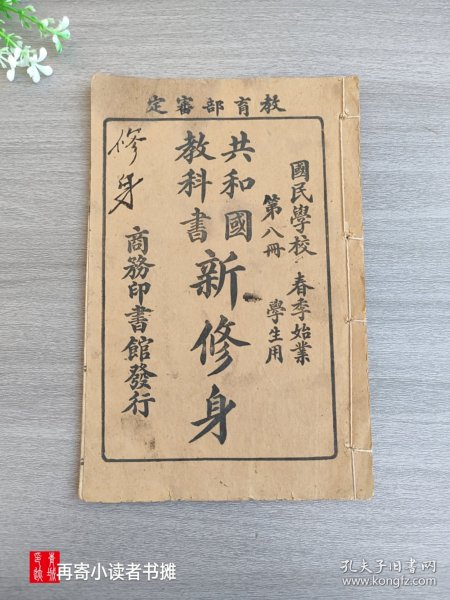 教育部審定
國民學校 春季始業
第八冊 學生用
共和國
教科書
新修身
商務印書館發行
修身
再寄小读者书摊
孔夫子旧书网
www.kongfz.com